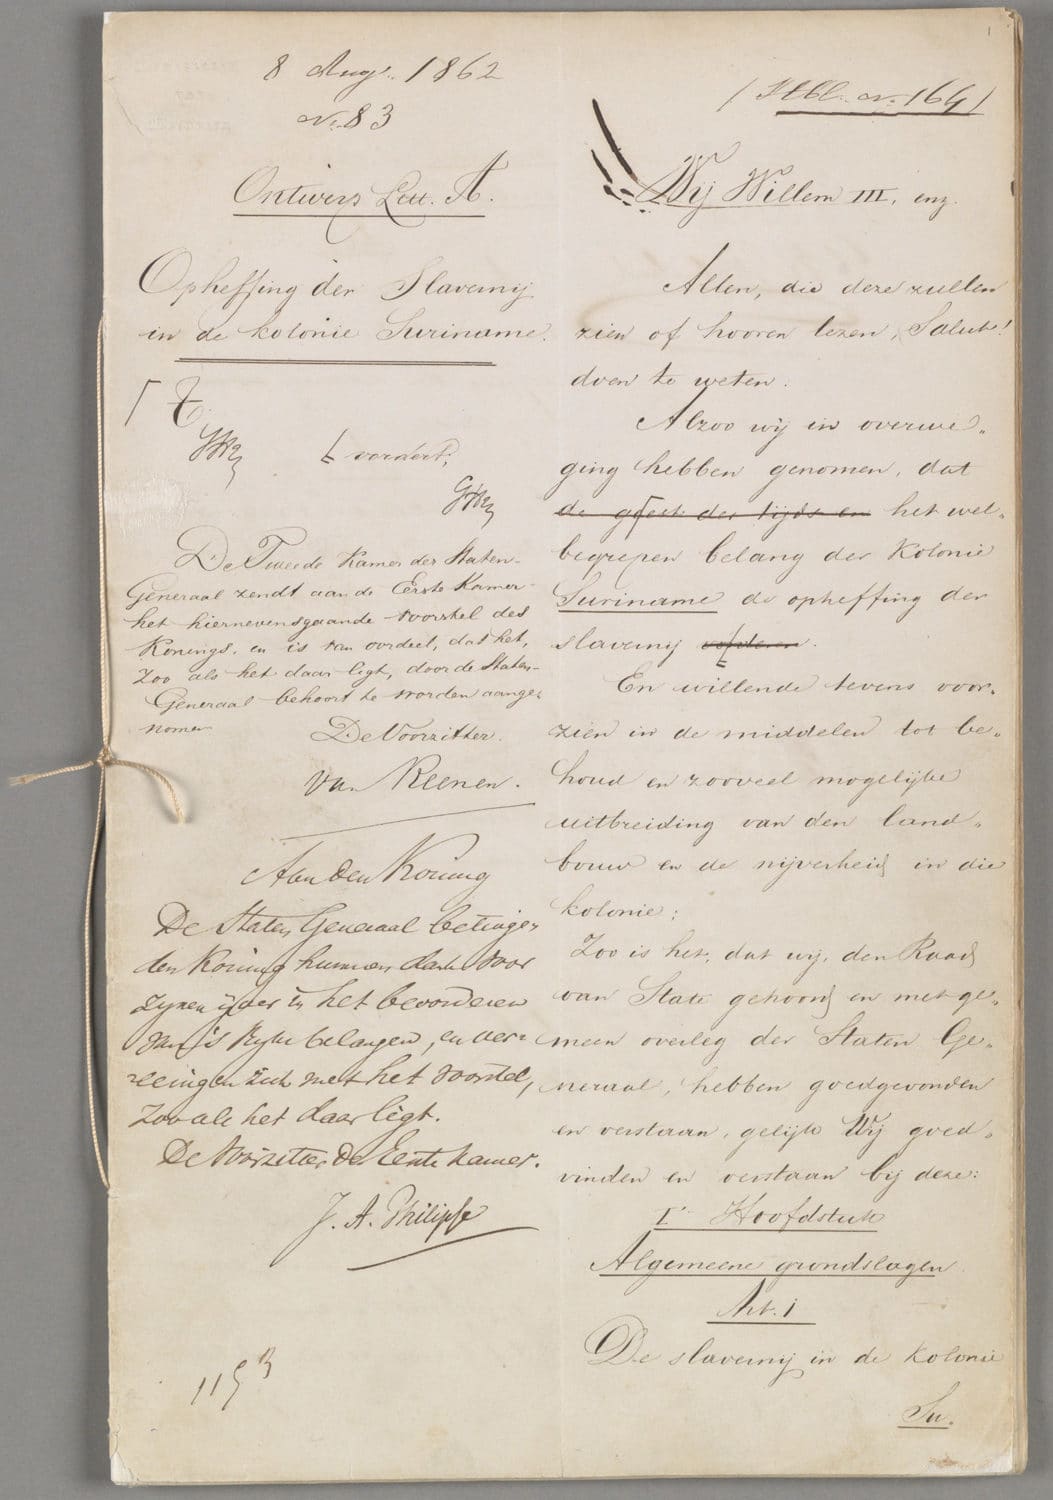 8 Aug. 1862
N. 83
Ontwerp Lett. A.
Opheffing der Slavernij
in de kolonie Suriname.
vordert;
De Tweede Kamer der Staten-
Generaal zendt aan de Eerste Kamer
het hiernevensgaande voorstel des
Konings, en is van oordeel, dat het,
zoo als het daar ligt, door de Staten-
Generaal behoort te worden aange-
nomen
De Voorzitter.
van Reenen.
Aan den Koning
De Staten Generaal betuigen
den Koning hunnen dank voor
zijnen ijver in het bevorderen
van 's Rijks belangen, en ver-
eenigen zich met het voorstel,
zoo als het daar ligt.
De Voorzitter der Eerste Kamer.
J. A. Philipse
115
(Stbl. N. 164)
Wij Willem III, enz.
Allen, die deze zullen
zien of hooren lezen, Salut!
doen te weten.
Alzoo wij in overwe-
ging hebben genomen, dat
de geest des tijds en het wel-
begrepen belang der Kolonie
Suriname de opheffing der
slavernij vorderen.
En willende tevens voor-
zien in de middelen tot be-
houd en zooveel mogelijke
uitbreiding van den land-
bouw en de nijverheid in die
kolonie;
Zoo is het, dat wij, den Raad
van State gehoord, en met ge-
meen overleg der Staten Ge-
neraal, hebben goedgevonden
en verstaan, gelijk Wij goed-
vinden en verstaan bij deze:
Ie Hoofdstuk
Algemeene grondslagen
Art. 1
De slavernij in de kolonie
Su.